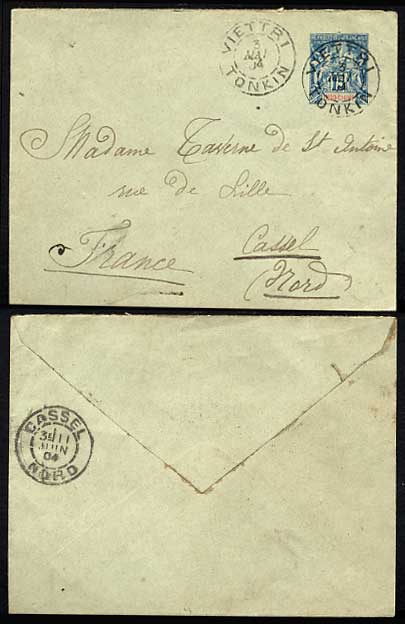 VIETTRI
3
MAI
04
TONKIN
VIETTRI
3
TONKIN
Madame Taverne de St Antoine
rue de Lille
Cassel
France
(Nord)
CASSEL
11
JUIN
04
NORD